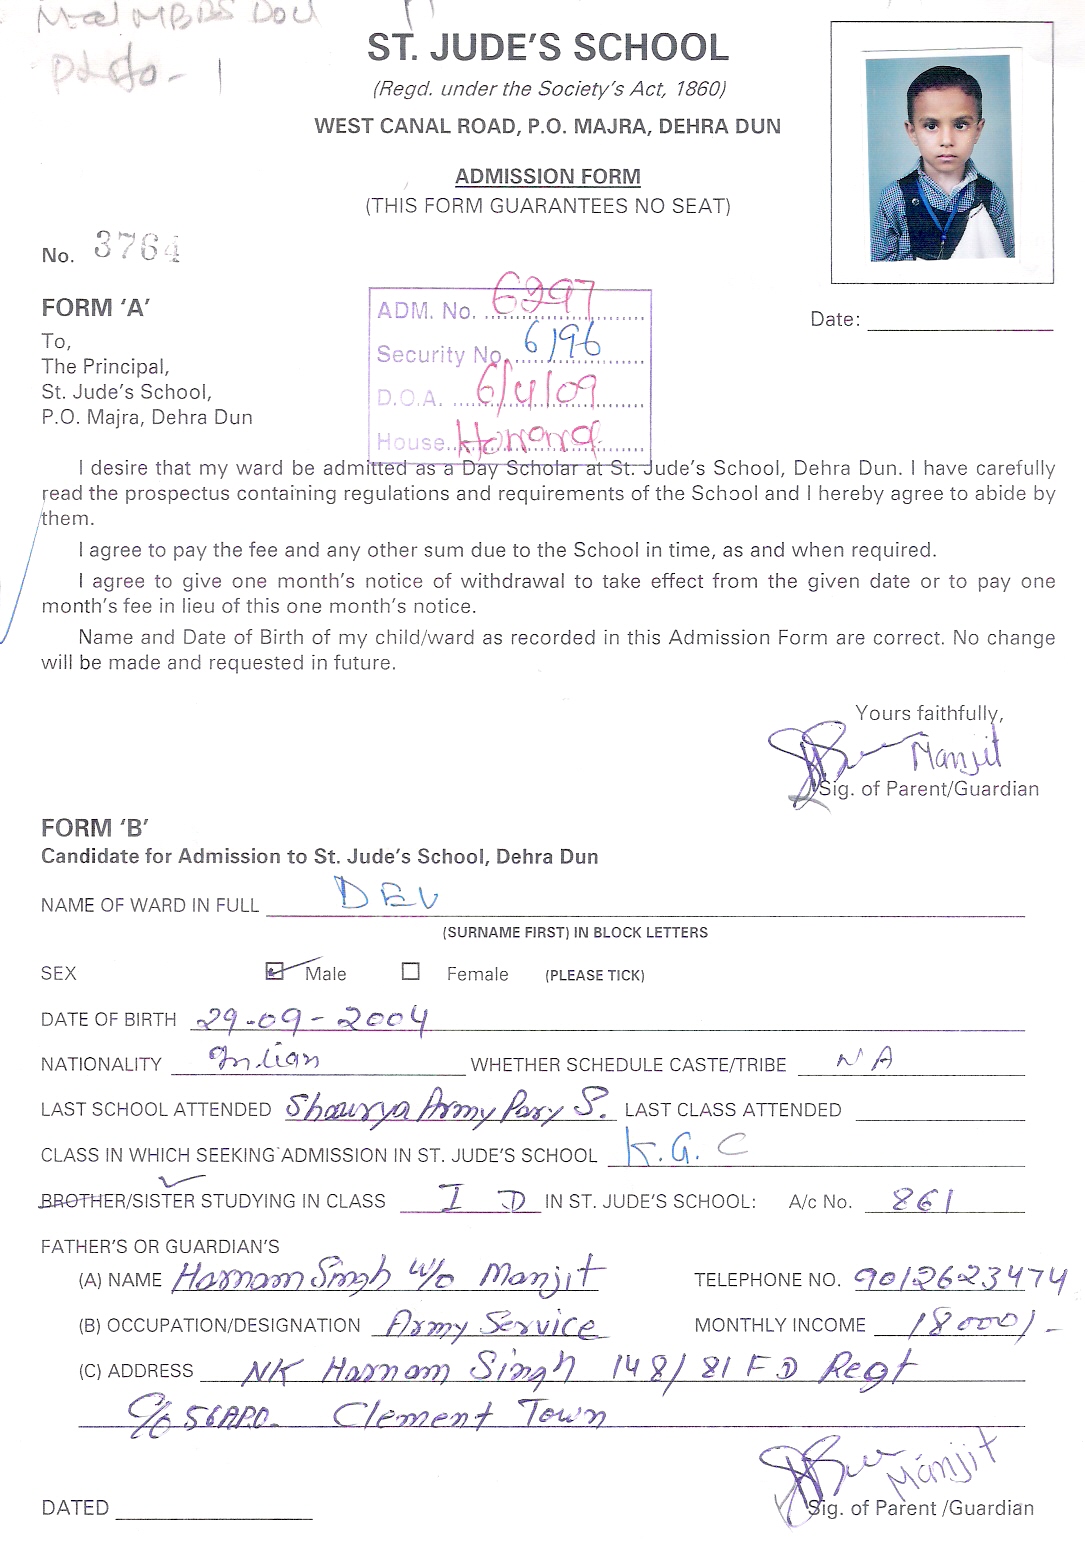 ST. JUDE'S SCHOOL
(Regd. under the Society's Act, 1860)
WEST CANAL ROAD, P.O. MAJRA, DEHRA DUN
ADMISSION FORM
(THIS FORM GUARANTEES NO SEAT)
No. 3764
FORM 'A'
To,
The Principal,
St. Jude's School,
P.O. Majra, Dehra Dun
ADM. No. 6297
Security No. 6196
D.O.A. 6/4/09
House
Date:
I desire that my ward be admitted as a Day Scholar at St. Jude's School, Dehra Dun. I have carefully
read the prospectus containing regulations and requirements of the School and I hereby agree to abide by
them.
I agree to pay the fee and any other sum due to the School in time, as and when required.
I agree to give one month's notice of withdrawal to take effect from the given date or to pay one
month's fee in lieu of this one month's notice.
Name and Date of Birth of my child/ward as recorded in this Admission Form are correct. No change
will be made and requested in future.
Yours faithfully,
Manjit
Sig. of Parent/Guardian
FORM 'B'
Candidate for Admission to St. Jude's School, Dehra Dun
NAME OF WARD IN FULL DEV
(SURNAME FIRST) IN BLOCK LETTERS
SEX Male Female (PLEASE TICK)
DATE OF BIRTH 29-09-2004
NATIONALITY Indian WHETHER SCHEDULE CASTE/TRIBE NA
LAST SCHOOL ATTENDED Shaurya Army Pary S. LAST CLASS ATTENDED
CLASS IN WHICH SEEKING ADMISSION IN ST. JUDE'S SCHOOL K.G. C
BROTHER/SISTER STUDYING IN CLASS I D IN ST. JUDE'S SCHOOL: A/c No. 861
FATHER'S OR GUARDIAN'S
(A) NAME Harnam Singh w/o Manjit TELEPHONE NO. 9012623474
(B) OCCUPATION/DESIGNATION Army Service MONTHLY INCOME 18000/-
(C) ADDRESS NK Harnam Singh 148/81 F D Regt
C/o 56 APO Clement Town
Manjit
DATED Sig. of Parent /Guardian